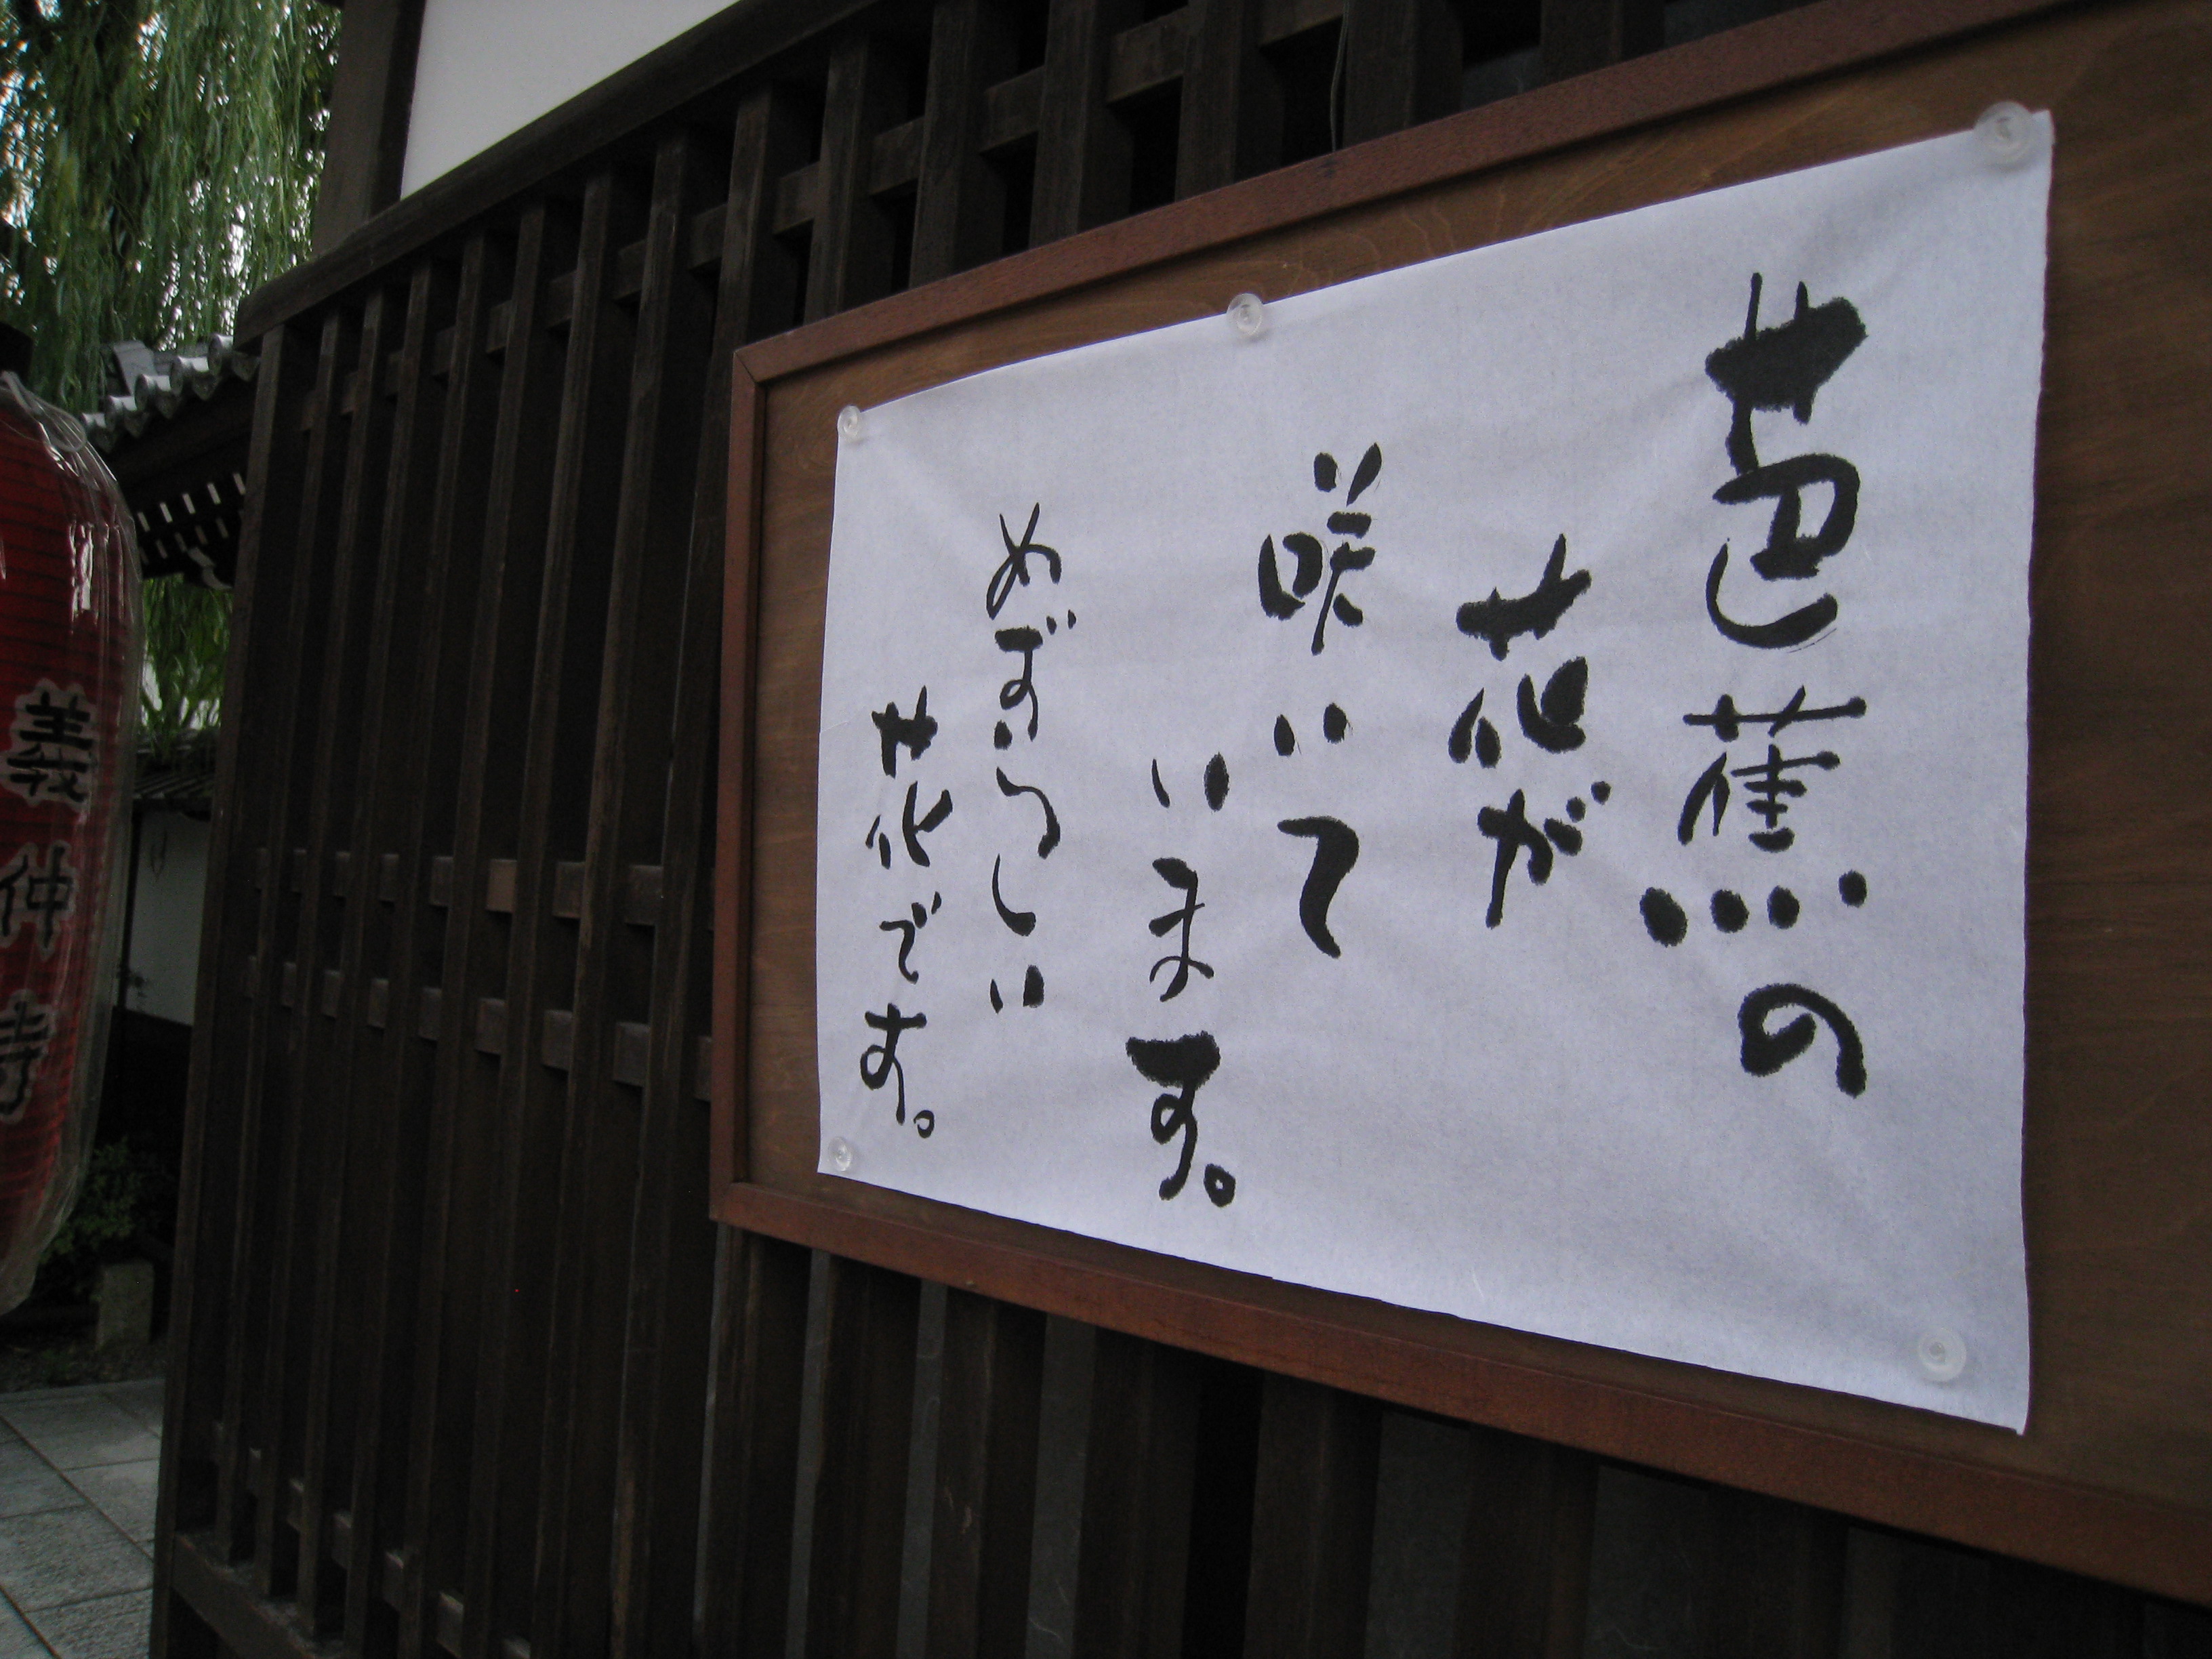 芭蕉の
花が
咲いて
います。
めずらしい
花です。
義仲寺